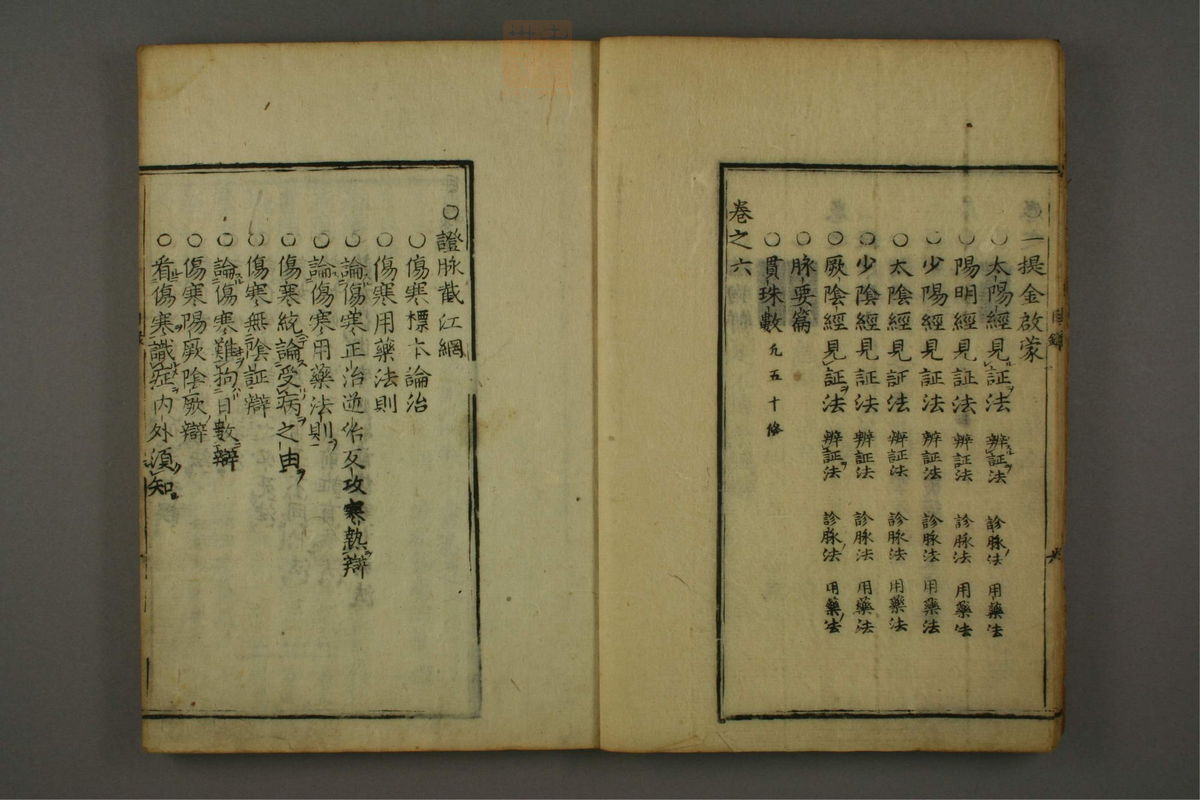 ○一提金啟蒙
○太陽經見証法 辨証法 診脉法 用藥法
○陽明經見証法 辨証法 診脉法 用藥法
○少陽經見証法 辨証法 診脉法 用藥法
○太陰經見証法 辨証法 診脉法 用藥法
○少陰經見証法 辨証法 診脉法 用藥法
○厥陰經見証法 辨証法 診脉法 用藥法
○脉要篇
○貫珠數 九五十條
卷之六
○證脉截江網
○傷寒標本論治
○傷寒用藥法則
○論傷寒正治逆治及攻寒熱辯
○論傷寒用藥法則
○傷寒統論受病之由
○傷寒無陰証辯
○論傷寒難拘日數辯
○傷寒陽厥陰厥辯
○看傷寒識症內外須知